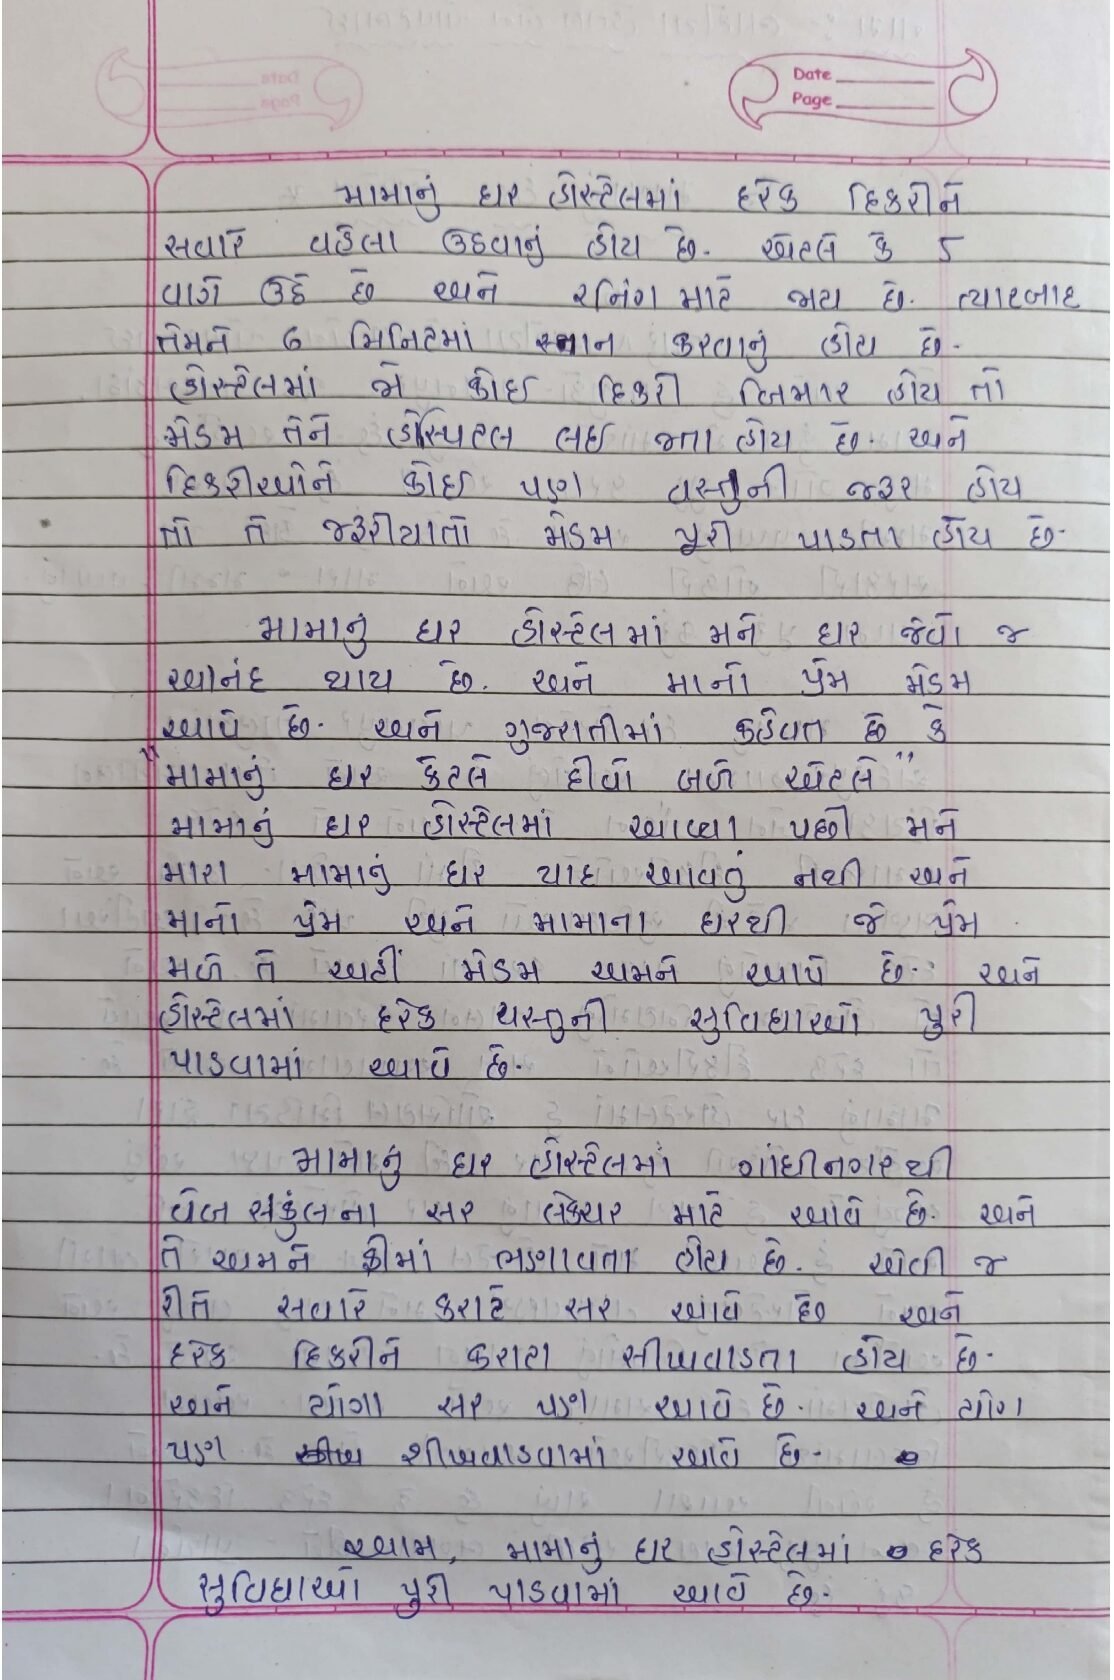 Date
Page
મામાનું ઘર હોસ્ટેલમાં દરેક દિકરીને
સવારે વહેલા ઉઠવાનું હોય છે. એટલે કે 5
વાગે ઉઠે છે અને રનિંગ માટે જાય છે. ત્યારબાદ
તેમને 6 મિનિટમાં સ્નાન કરવાનું હોય છે.
હોસ્ટેલમાં જો કોઈ દિકરી બિમાર હોય તો
મેડમ તેને હોસ્પિટલ લઈ જતા હોય છે. અને
દિકરીઓને કોઈ પણ વસ્તુની જરૂર હોય
તો તે જરૂરીયાતો મેડમ પૂરી પાડતા હોય છે.
મામાનું ઘર હોસ્ટેલમાં મને ઘર જેવો જ
આનંદ થાય છે. અને માનો પ્રેમ મેડમ
આપે છે. અને ગુજરાતીમાં કહેવત છે કે
"મામાનું ઘર કેટલે દીવો બળે એટલે"
મામાનું ઘર હોસ્ટેલમાં આવ્યા પછી મને
મારા મામાનું ઘર યાદ આવતું નથી અને
માનો પ્રેમ અને મામાના ઘરથી જે પ્રેમ
મળે તે અહીં મેડમ અમને આપે છે. અને
હોસ્ટેલમાં દરેક વસ્તુની સુવિધાઓ પુરી
પાડવામાં આવે છે.
મામાનું ઘર હોસ્ટેલમાં ગાંધીનગરથી
વેબ સંકુલના સર લેક્ચર માટે આવે છે. અને
તે અમને ફ્રીમાં ભણાવતા હોય છે. એવી જ
રીતે સવારે કરાટે સર આવે છે અને
દરેક દિકરીને કરાટા સીખવાડતા હોય છે.
અને યોગા સર પણ આવે છે. અને યોગ
પણ શીખવાડવામાં આવે છે.
આમ, મામાનું ઘર હોસ્ટેલમાં દરેક
સુવિધાઓ પુરી પાડવામાં આવે છે.